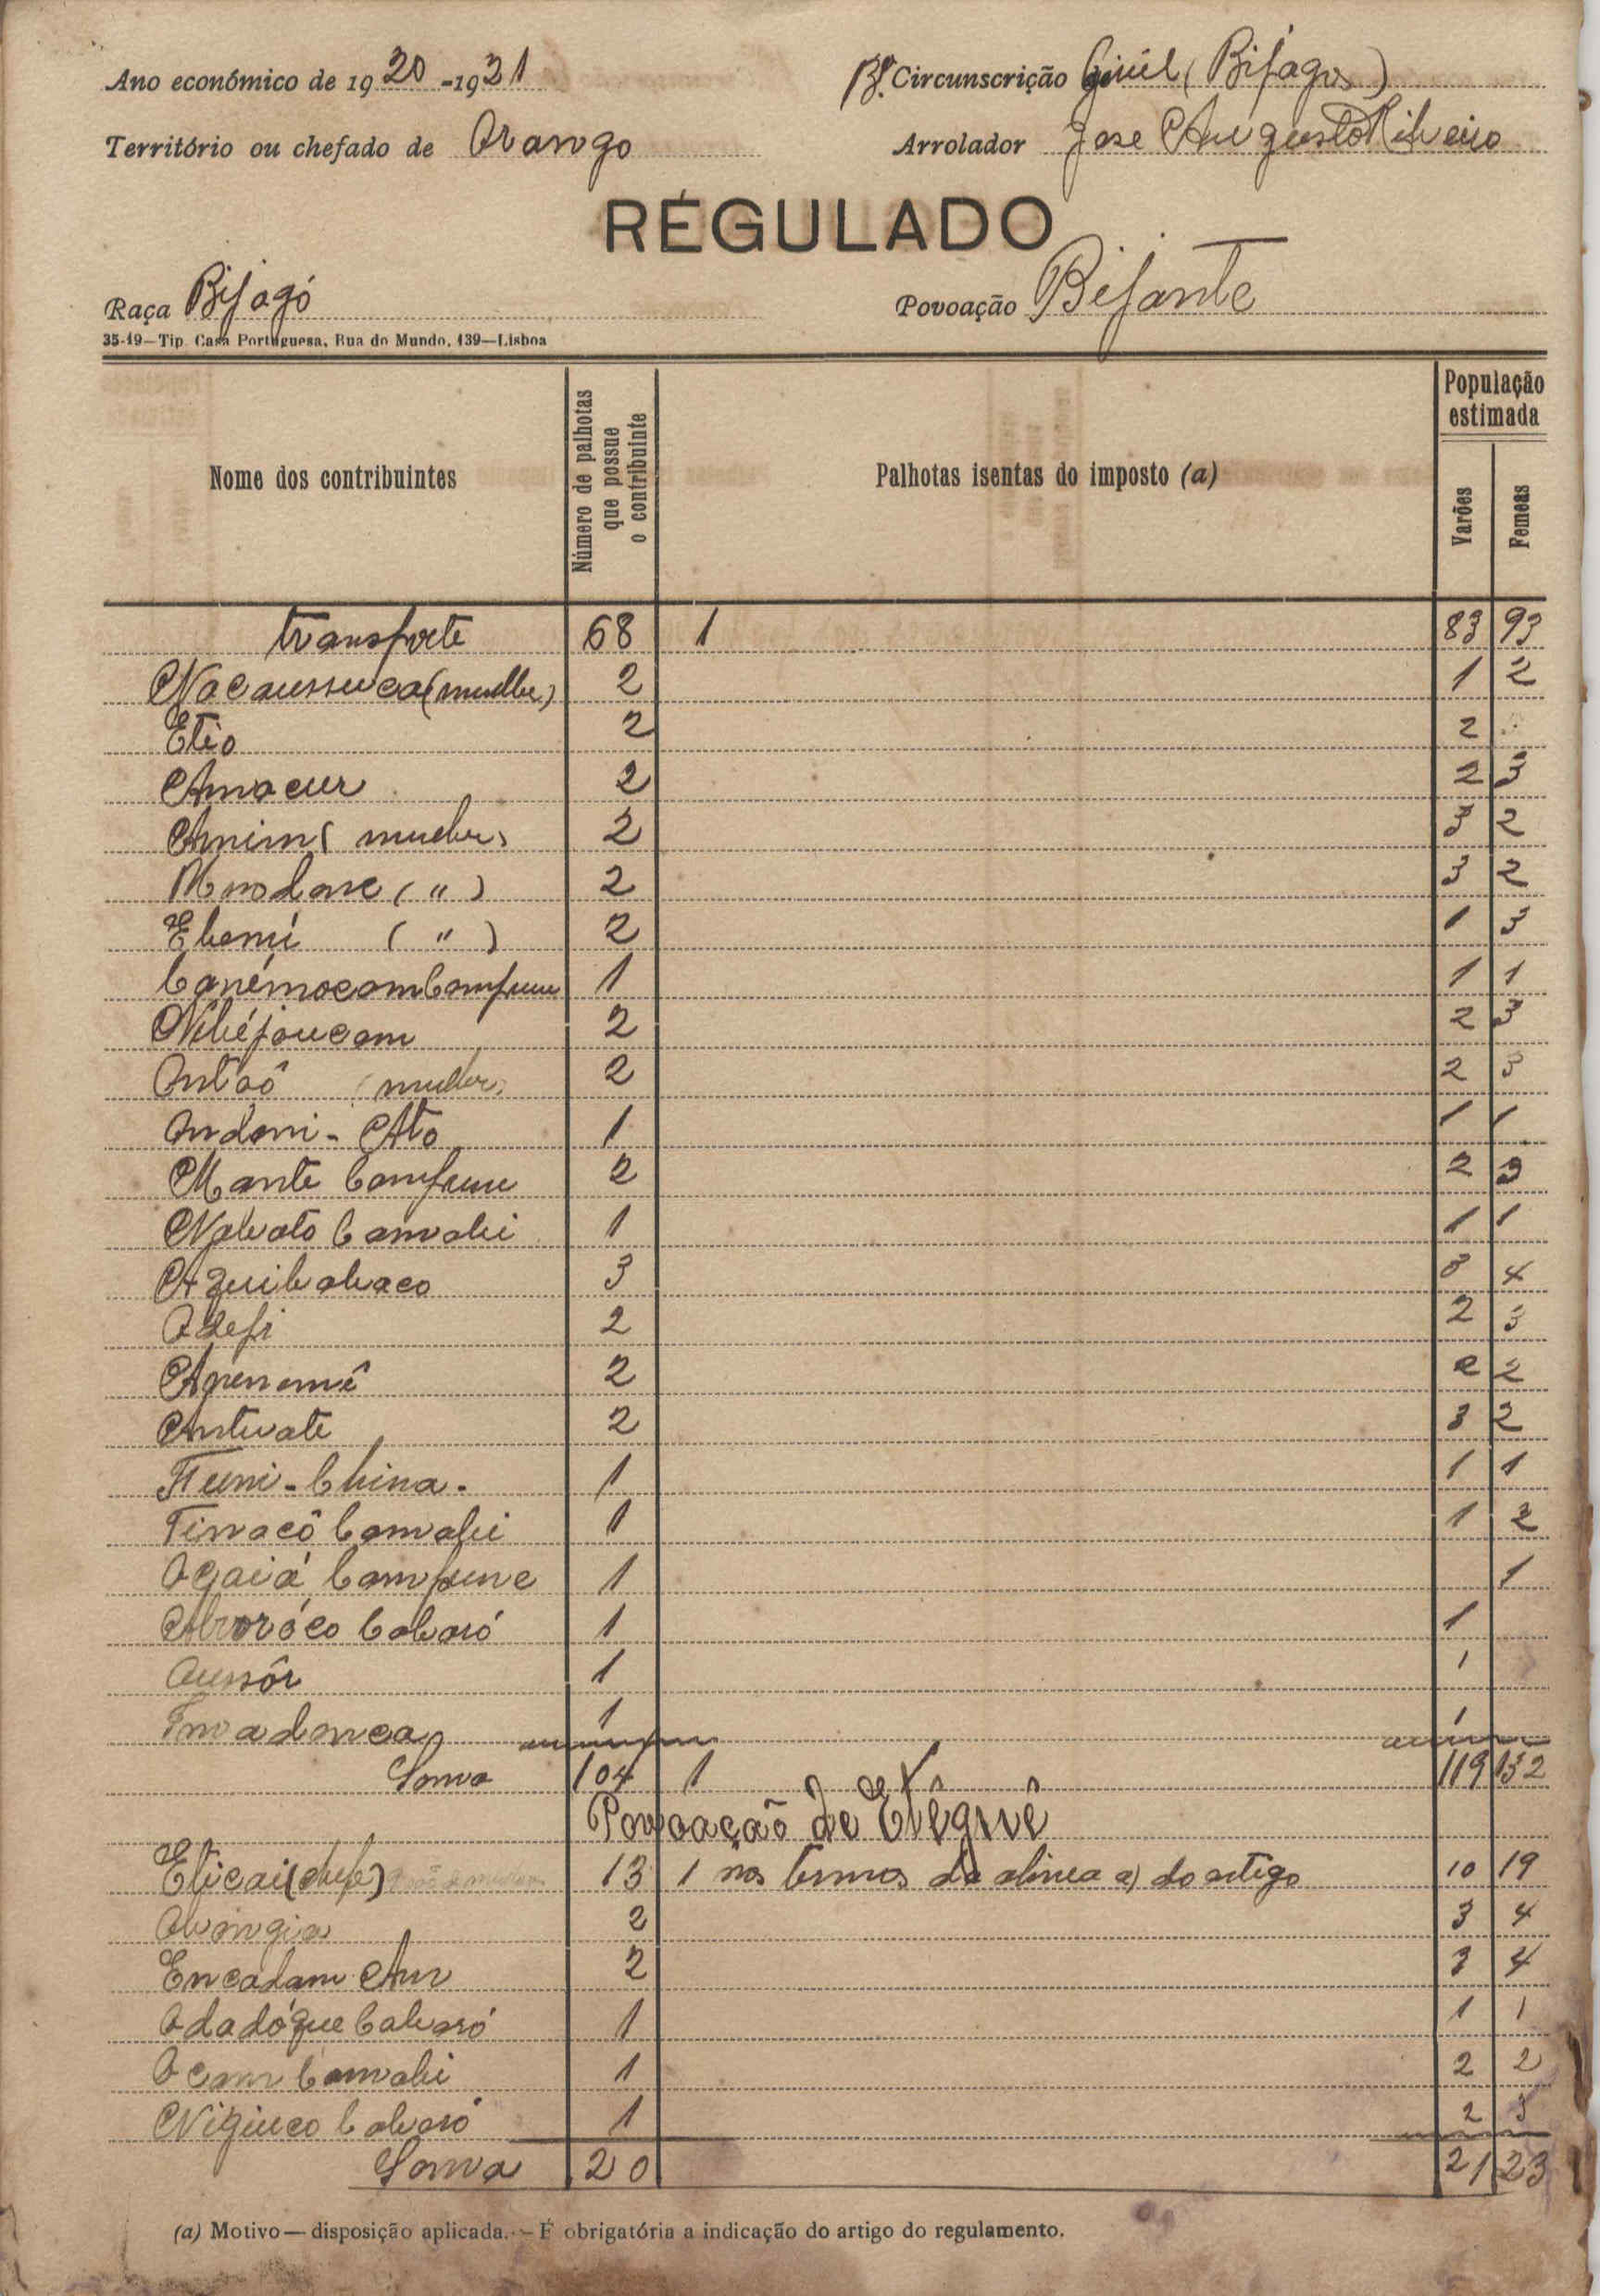 Ano económico de 1920-1921
Bº. Circunscrição Civil (Bijagos)
Território ou chefado de Orango
Arrolador Jose Augusto Ribeiro
RÉGULADO
Raça Bijagó
Povoação Bijante
35-19—Tip. Casa Portuguesa, Rua do Mundo, 139—Lisboa
Nome dos contribuintes
Número de palhotas que possue o contribuinte
Palhotas isentas do imposto (a)
População estimada
Varões
Femeas
transporte 68 1 83 93
Nacaussuca (mulher) 2 1 2
Etio 2 2
Amacur 2 2 3
Anim (mulher) 2 3 2
(") 2 3 2
(") 2 1 3
1 1 1
2 2 3
Ontaô (mulher) 2 2 3
Ondoni-Ato 1 1 1
Mante Campune 2 2 3
Nabato Canvabi 1 1 1
Aquibabaco 3 3 4
2 2 3
Apenomê 2 2 2
Antuate 2 3 2
Funi-China. 1 1 1
Tinacô Canvabi 1 1 2
Ogaiá Campune 1 1
Cabaró 1 1
Ounsôr 1 1
1 1
Soma 104 1 119 132
Povoação de Etêguê
Eticai (chefe) 13 1 nos termos da alinea a) do artigo 10 19
2 3 4
Encadam Aur 2 3 4
Odadóque Cabaró 1 1 1
Ocam Canvabi 1 2 2
Niquico Cabaró 1 2 3
Soma 20 21 23
(a) Motivo—disposição aplicada.—É obrigatória a indicação do artigo do regulamento.